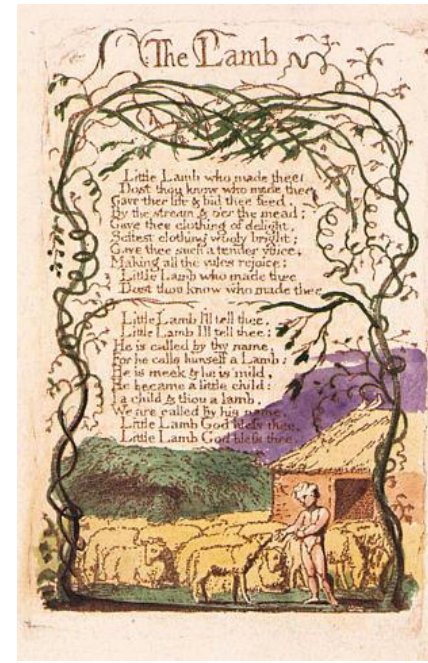 The Lamb
Little Lamb who made thee
Dost thou know who made thee
Gave thee life & bid thee feed.
By the stream & o'er the mead;
Gave thee clothing of delight,
Softest clothing wooly bright;
Gave thee such a tender voice,
Making all the vales rejoice:
Little Lamb who made thee
Dost thou know who made thee
Little Lamb I'll tell thee,
Little Lamb I'll tell thee;
He is called by thy name,
For he calls himself a Lamb:
He is meek & he is mild,
He became a little child:
I a child & thou a lamb,
We are called by his name.
Little Lamb God bless thee.
Little Lamb God bless thee.